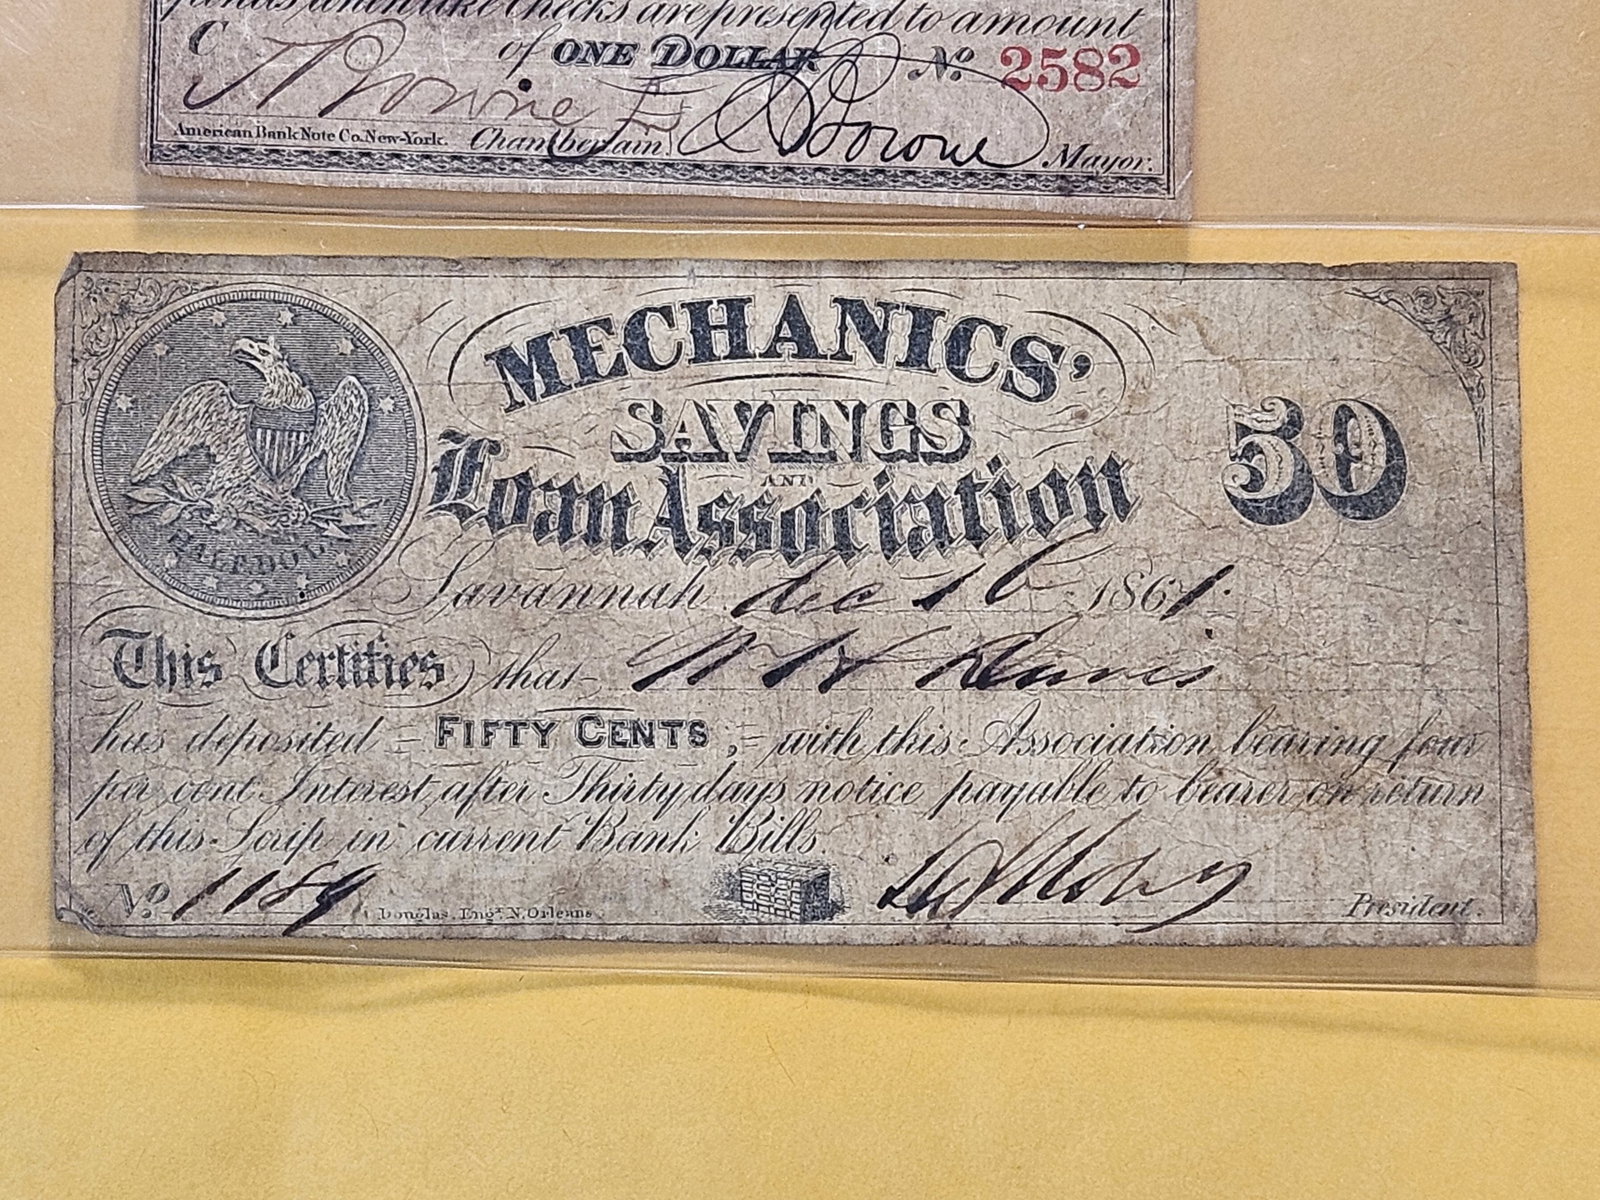 funds when like Checks are presented to amount
of ONE DOLLAR No. 2582
C
American Bank Note Co. New-York. Chamberlain Mayor.
MECHANICS'
SAVINGS
AND
Loan Association
50
HALF DOL.
Savannah Dec 16 1861.
This Certifies that W H Davis
has deposited FIFTY CENTS, with this Association bearing four
per cent Interest, after Thirty days notice payable to bearer on return
of this Scrip in current Bank Bills.
No. 1189 Douglas, Engr. N. Orleans President.